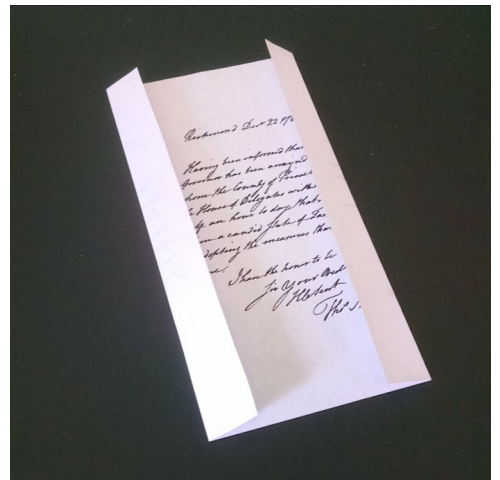 Richmond Decr 22 178
Having been informed that
Governor has been arraign
from the County of Princes
e House of Delegates with
lf an hour to day that
m a candid State of Fac
dopting the measures than
ce.
I have the honor to be
Sir Your Obed
Thos. S.